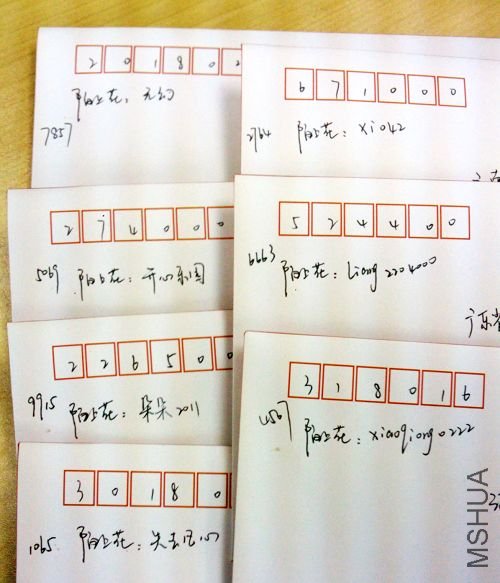 2 0 1 8 0 2
陌上花：无幻
7857
6 7 1 0 0 0
2764 陌上花：xi042
2 7 4 0 0 0
5069 陌上花：开心乐园
5 2 4 4 0 0
6663 陌上花：liang2204000
广东省
2 2 6 5 0 0
9915 陌上花：朵朵2011
3 1 8 0 1 6
陌上花：xiaoqiong0222
3 0 1 8 0 0
1065 陌上花：失去风心
MSHUA